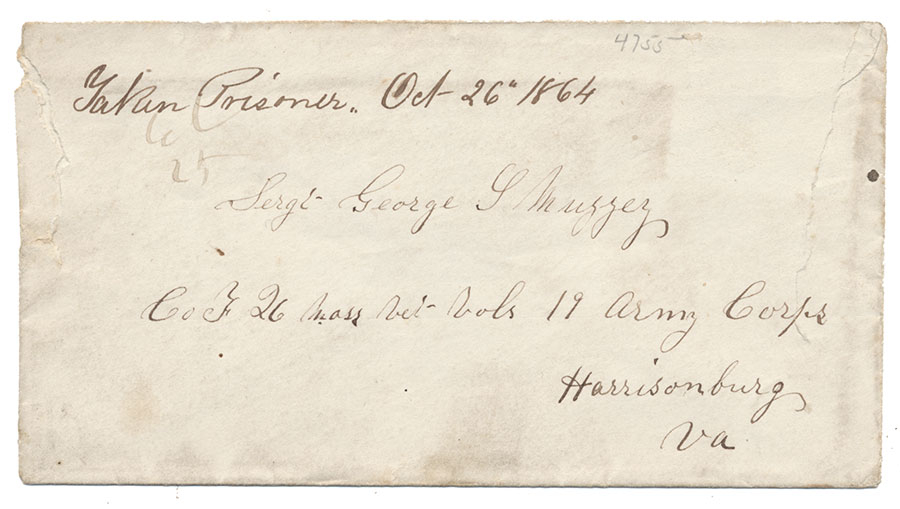 4755
Taken Prisoner. Oct 26" 1864
25
Sergt George S Muzzey
Co F 26 Mass Vet Vols 19 Army Corps
Harrisonburg
Va